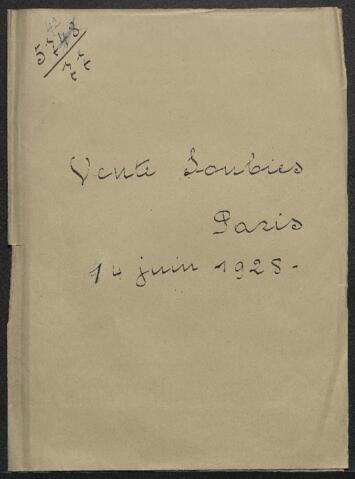 Vente Soubies
Paris
14 juin 1928-